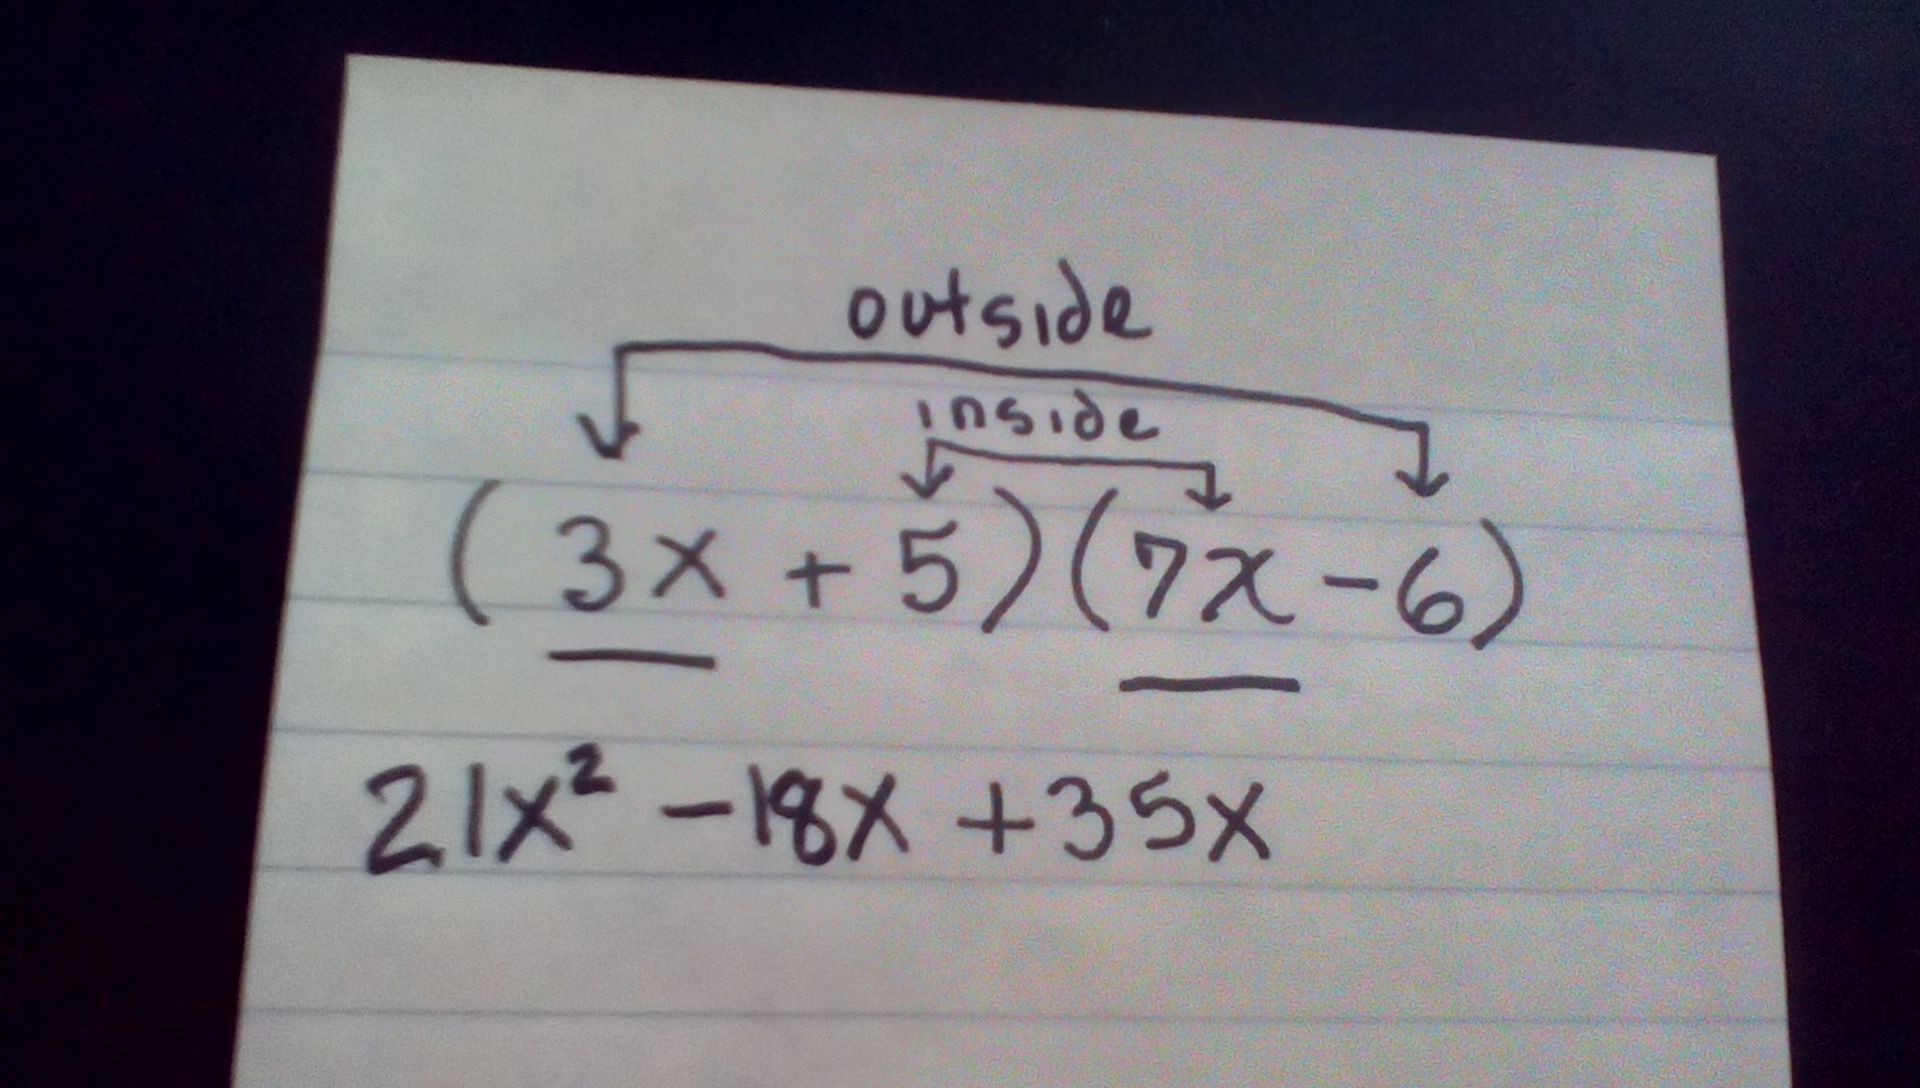 outside
inside
(3x + 5)(7x - 6)
21x² - 18x + 35x